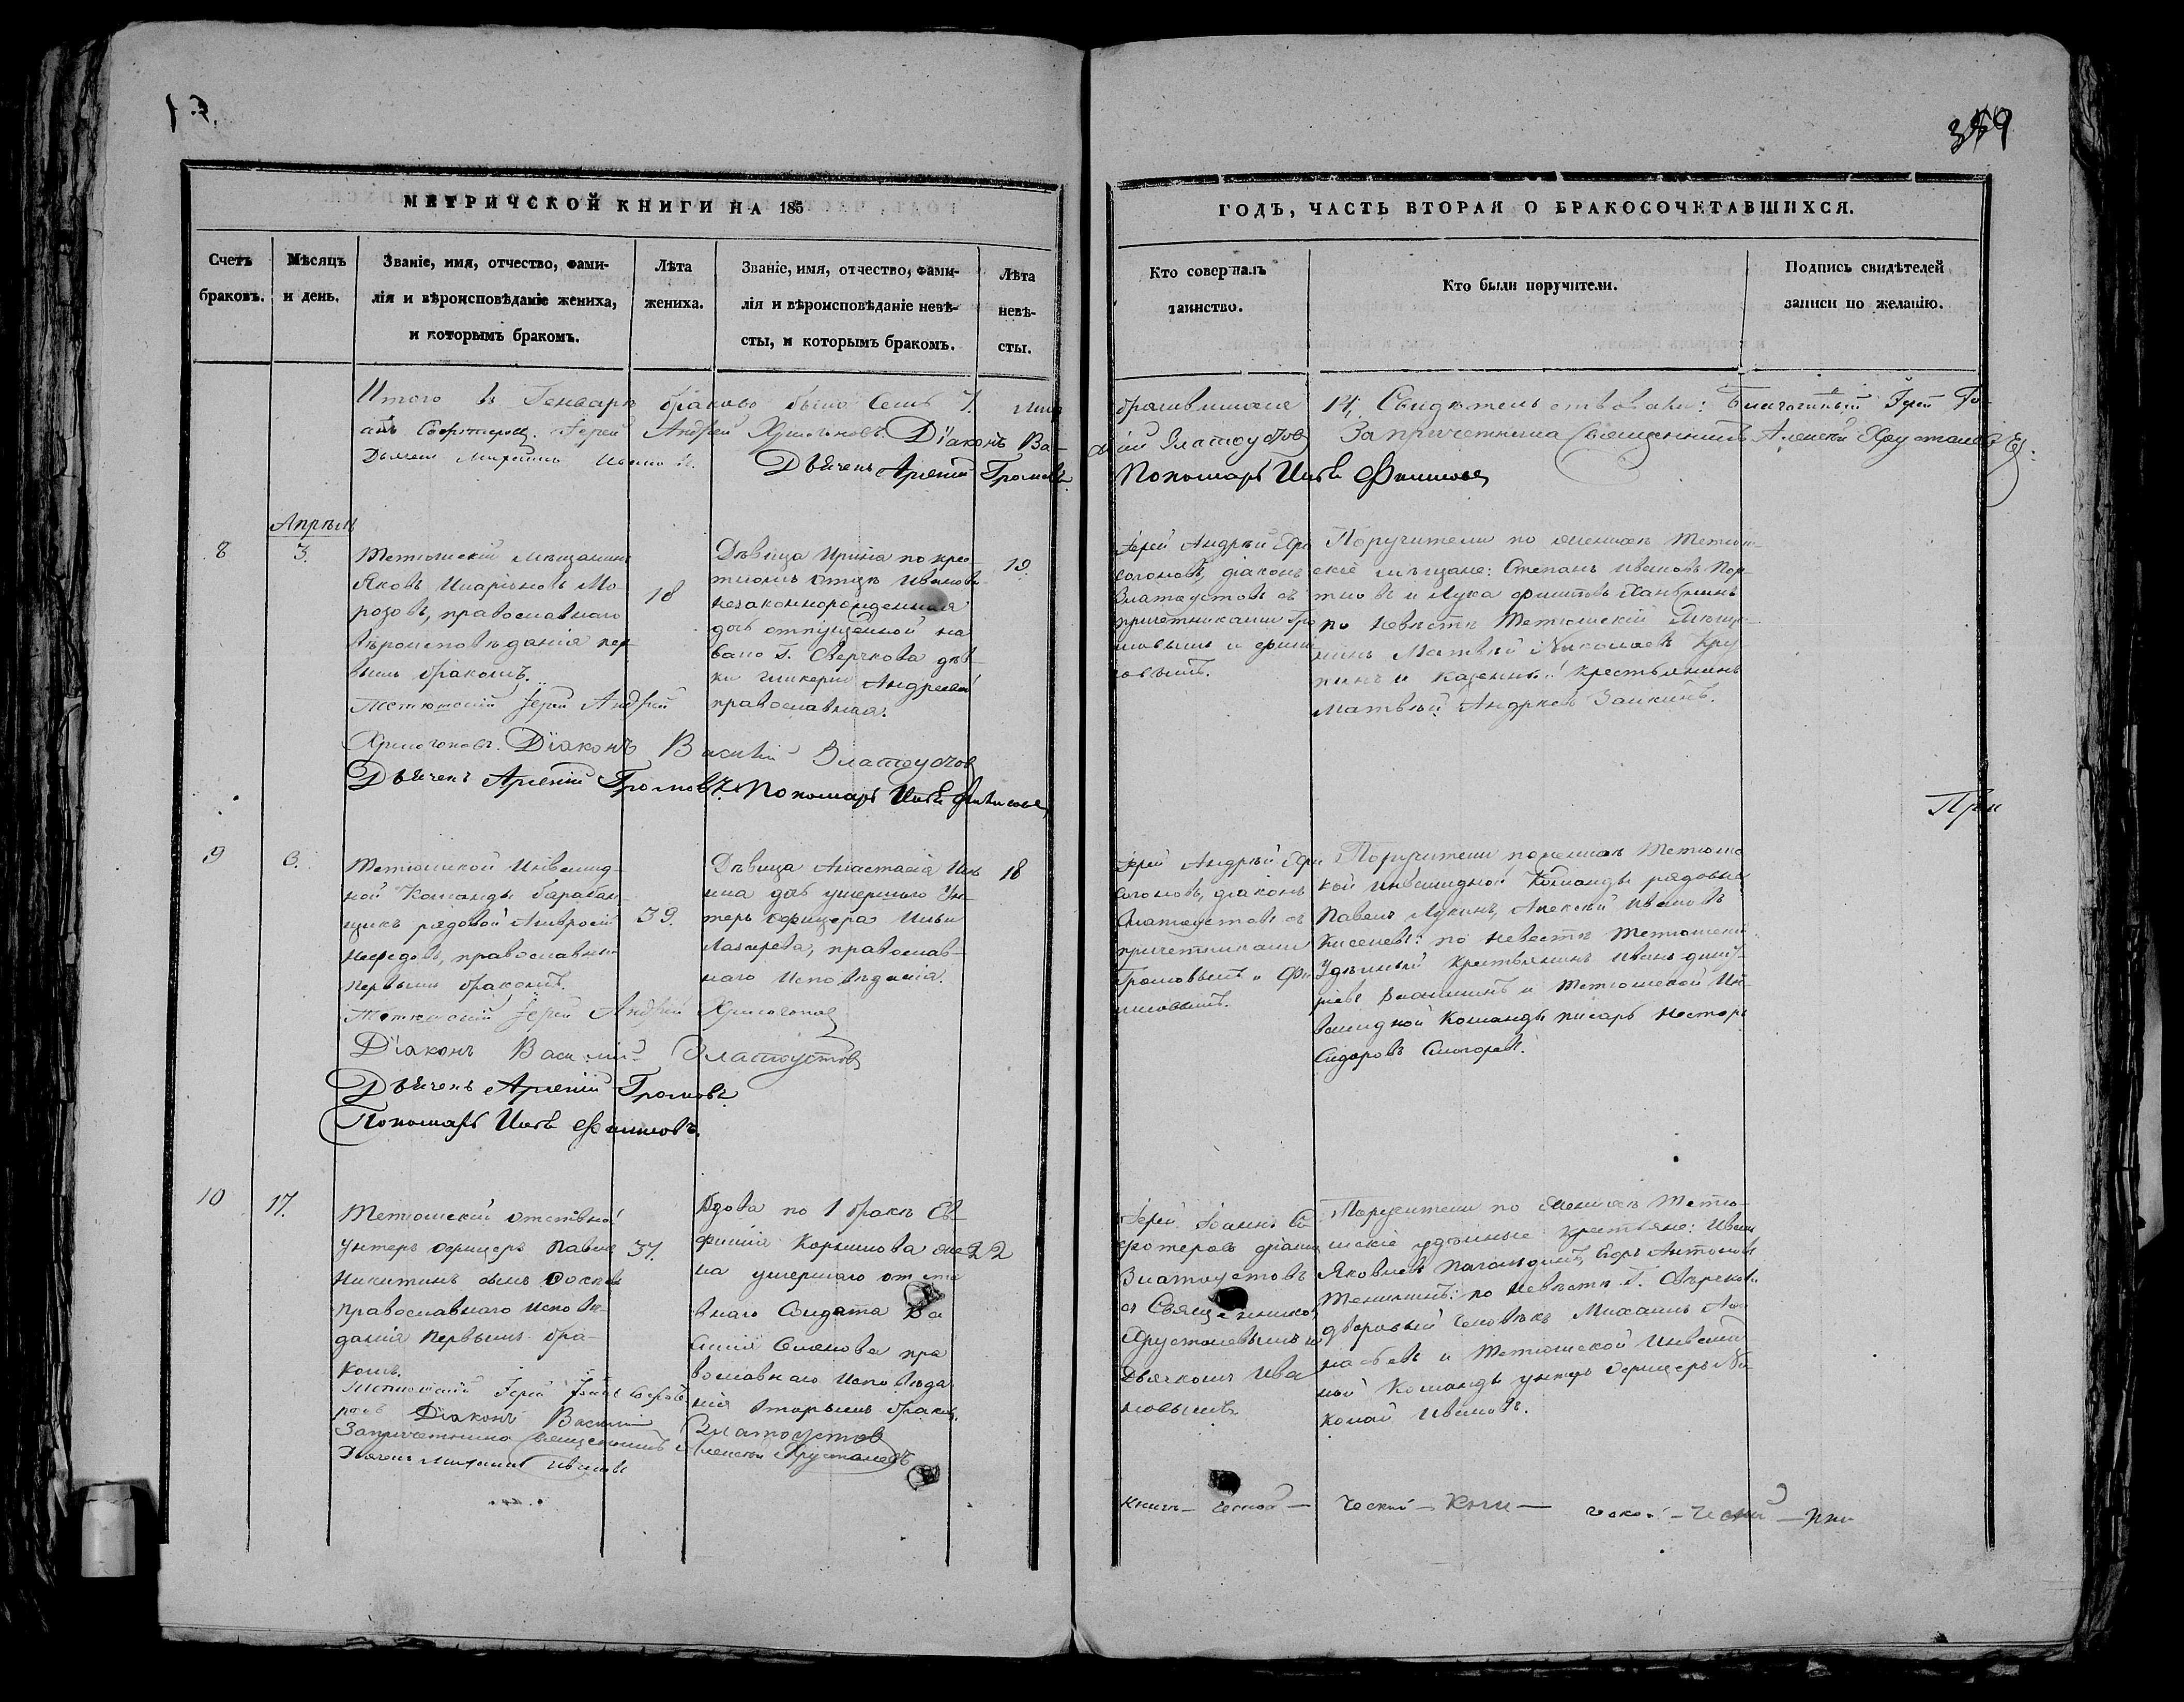 359
МЕТРИЧСКОЙ КНИГИ НА 185
ГОДЪ, ЧАСТЬ ВТОРАЯ О БРАКОСОЧЕТАВШИХСЯ.
Счетъ
браковъ.
Мѣсяцъ
и день.
Званіе, имя, отчество, фами-
лія и вѣроисповѣданіе жениха,
и которымъ бракомъ.
Лѣта
жениха.
Званіе, имя, отчество, фами-
лія и вѣроисповѣданіе невѣ-
сты, и которымъ бракомъ.
Лѣта
невѣ-
сты.
Кто совершалъ
таинство.
Кто были поручители.
Подпись свидѣтелей
записи по желанію.
Итого в Генварѣ браковъ было семь 7. лицъ
бракившихся 14; Свидѣтельствовали: Благочинный Іерей
Іерей Андрей Хрисогоновъ. Діаконъ Ва-
силій Златоустов Запричетника Священникъ Алексѣй Хрусталевъ
Дьячекъ Михаилъ Ивановъ. Дьячекъ Арсеній Громовъ
Пономарь Филиповъ
Апрѣль
8
3.
Тетюшскій мѣщанинъ
Яковъ Иларіоновъ Мо-
розовъ, православнаго
вѣроисповѣданія пер-
вымъ бракомъ.
Тетюшскій Іерей Андрей
Хрисогоновъ. Діаконъ Василій Златоустов
Дьячекъ Арсеній Громовъ. Пономарь Филиповъ
18
Дѣвица Ирина по кре-
стномъ отцѣ Иванова
незаконнорожденная
дочь отпущенной на
волю Г. Сверчкова дѣв-
ки Гликеріи Андреевой
православная.
19.
Іерей Андрей Хри
согоновъ, діаконъ
Златоустовъ съ
причетниками Гро
мовымъ и Фили
повымъ.
Поручители по женихѣ Тетюш-
скіе мѣщане: Степанъ Ивановъ Пор-
тновъ и Лука Филиповъ
по невѣстѣ Тетюшскій мѣща-
нинъ Матвѣй Николаевъ Кру
и казенный крестьянинъ
Матвѣй Андреевъ Заикинъ.
При
9
6.
Тетюшской Инвалид-
ной Команды барабан-
щикъ рядовой Амвросій
Нефедовъ, православный
первымъ бракомъ.
Тетюшскій Іерей Андрей Хрисогоновъ
Діаконъ Василій Златоустовъ
Дьячекъ Арсеній Громовъ
Пономарь Филиповъ.
39.
Дѣвица Анастасія Иль
ина дочь умершаго Ун-
теръ офицера Ильи
Лазарева, православ-
наго исповѣданія.
18
Іерей Андрей Хри
согоновъ, діаконъ
Златоустовъ съ
причетниками
Громовымъ и Фи
липовымъ.
Поручители по женихѣ Тетюшс
кой инвалидной Команды рядовые
Павелъ Лукинъ, Алексѣй Ивановъ
Киселевъ: по невѣстѣ Тетюшскій
Удѣльный крестьянинъ Иванъ Дмит-
ріевъ и Тетюшской Ин-
валидной Команды писарь Несторъ
Сидоровъ
10
17.
Тетюшскій отставной
Унтеръ офицеръ Павелъ
Никитинъ
православнаго исповѣ-
данія первымъ бра-
комъ.
Тетюшскій Іерей
Діаконъ Василій Златоустов
Запричетника Священникъ Алексѣй Хрусталевъ
Дьячекъ Михаилъ Ивановъ
37.
Вдова по 1 бракѣ Ев-
фимія Корнилова же
на умершаго отста
внаго Солдата Ва
силія Семенова пра
вославнаго исповѣда
нія вторымъ бракомъ.
22
Іерей Іоаннъ
діаконъ
Златоустовъ
съ Священникомъ
Хрусталевымъ и
Дьячкомъ Ива
новымъ.
Поручители по женихѣ Тетю-
шскіе удѣльные крестьяне: Иванъ
Яковлевъ Егоръ Антоновъ
по невѣстѣ Г. Сверчкова
дворовый человѣкъ Михаилъ
и Тетюшской инвалид
ной Команды унтеръ офицеръ Ни-
колай Ивановъ.